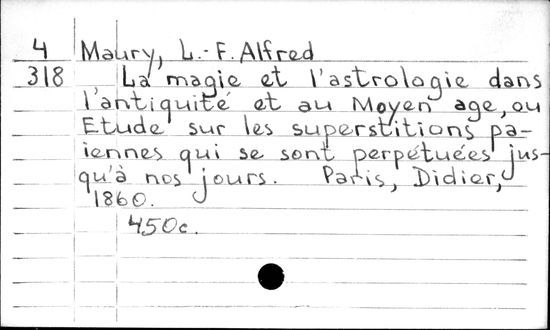 4 Maury, L.-F. Alfred
318 La magie et l'astrologie dans
l'antiquité et au Moyen age, ou
Etude sur les superstitions pa-
iennes qui se sont perpétuées jus-
qu'à nos jours. Paris, Didier,
1860.
450c.